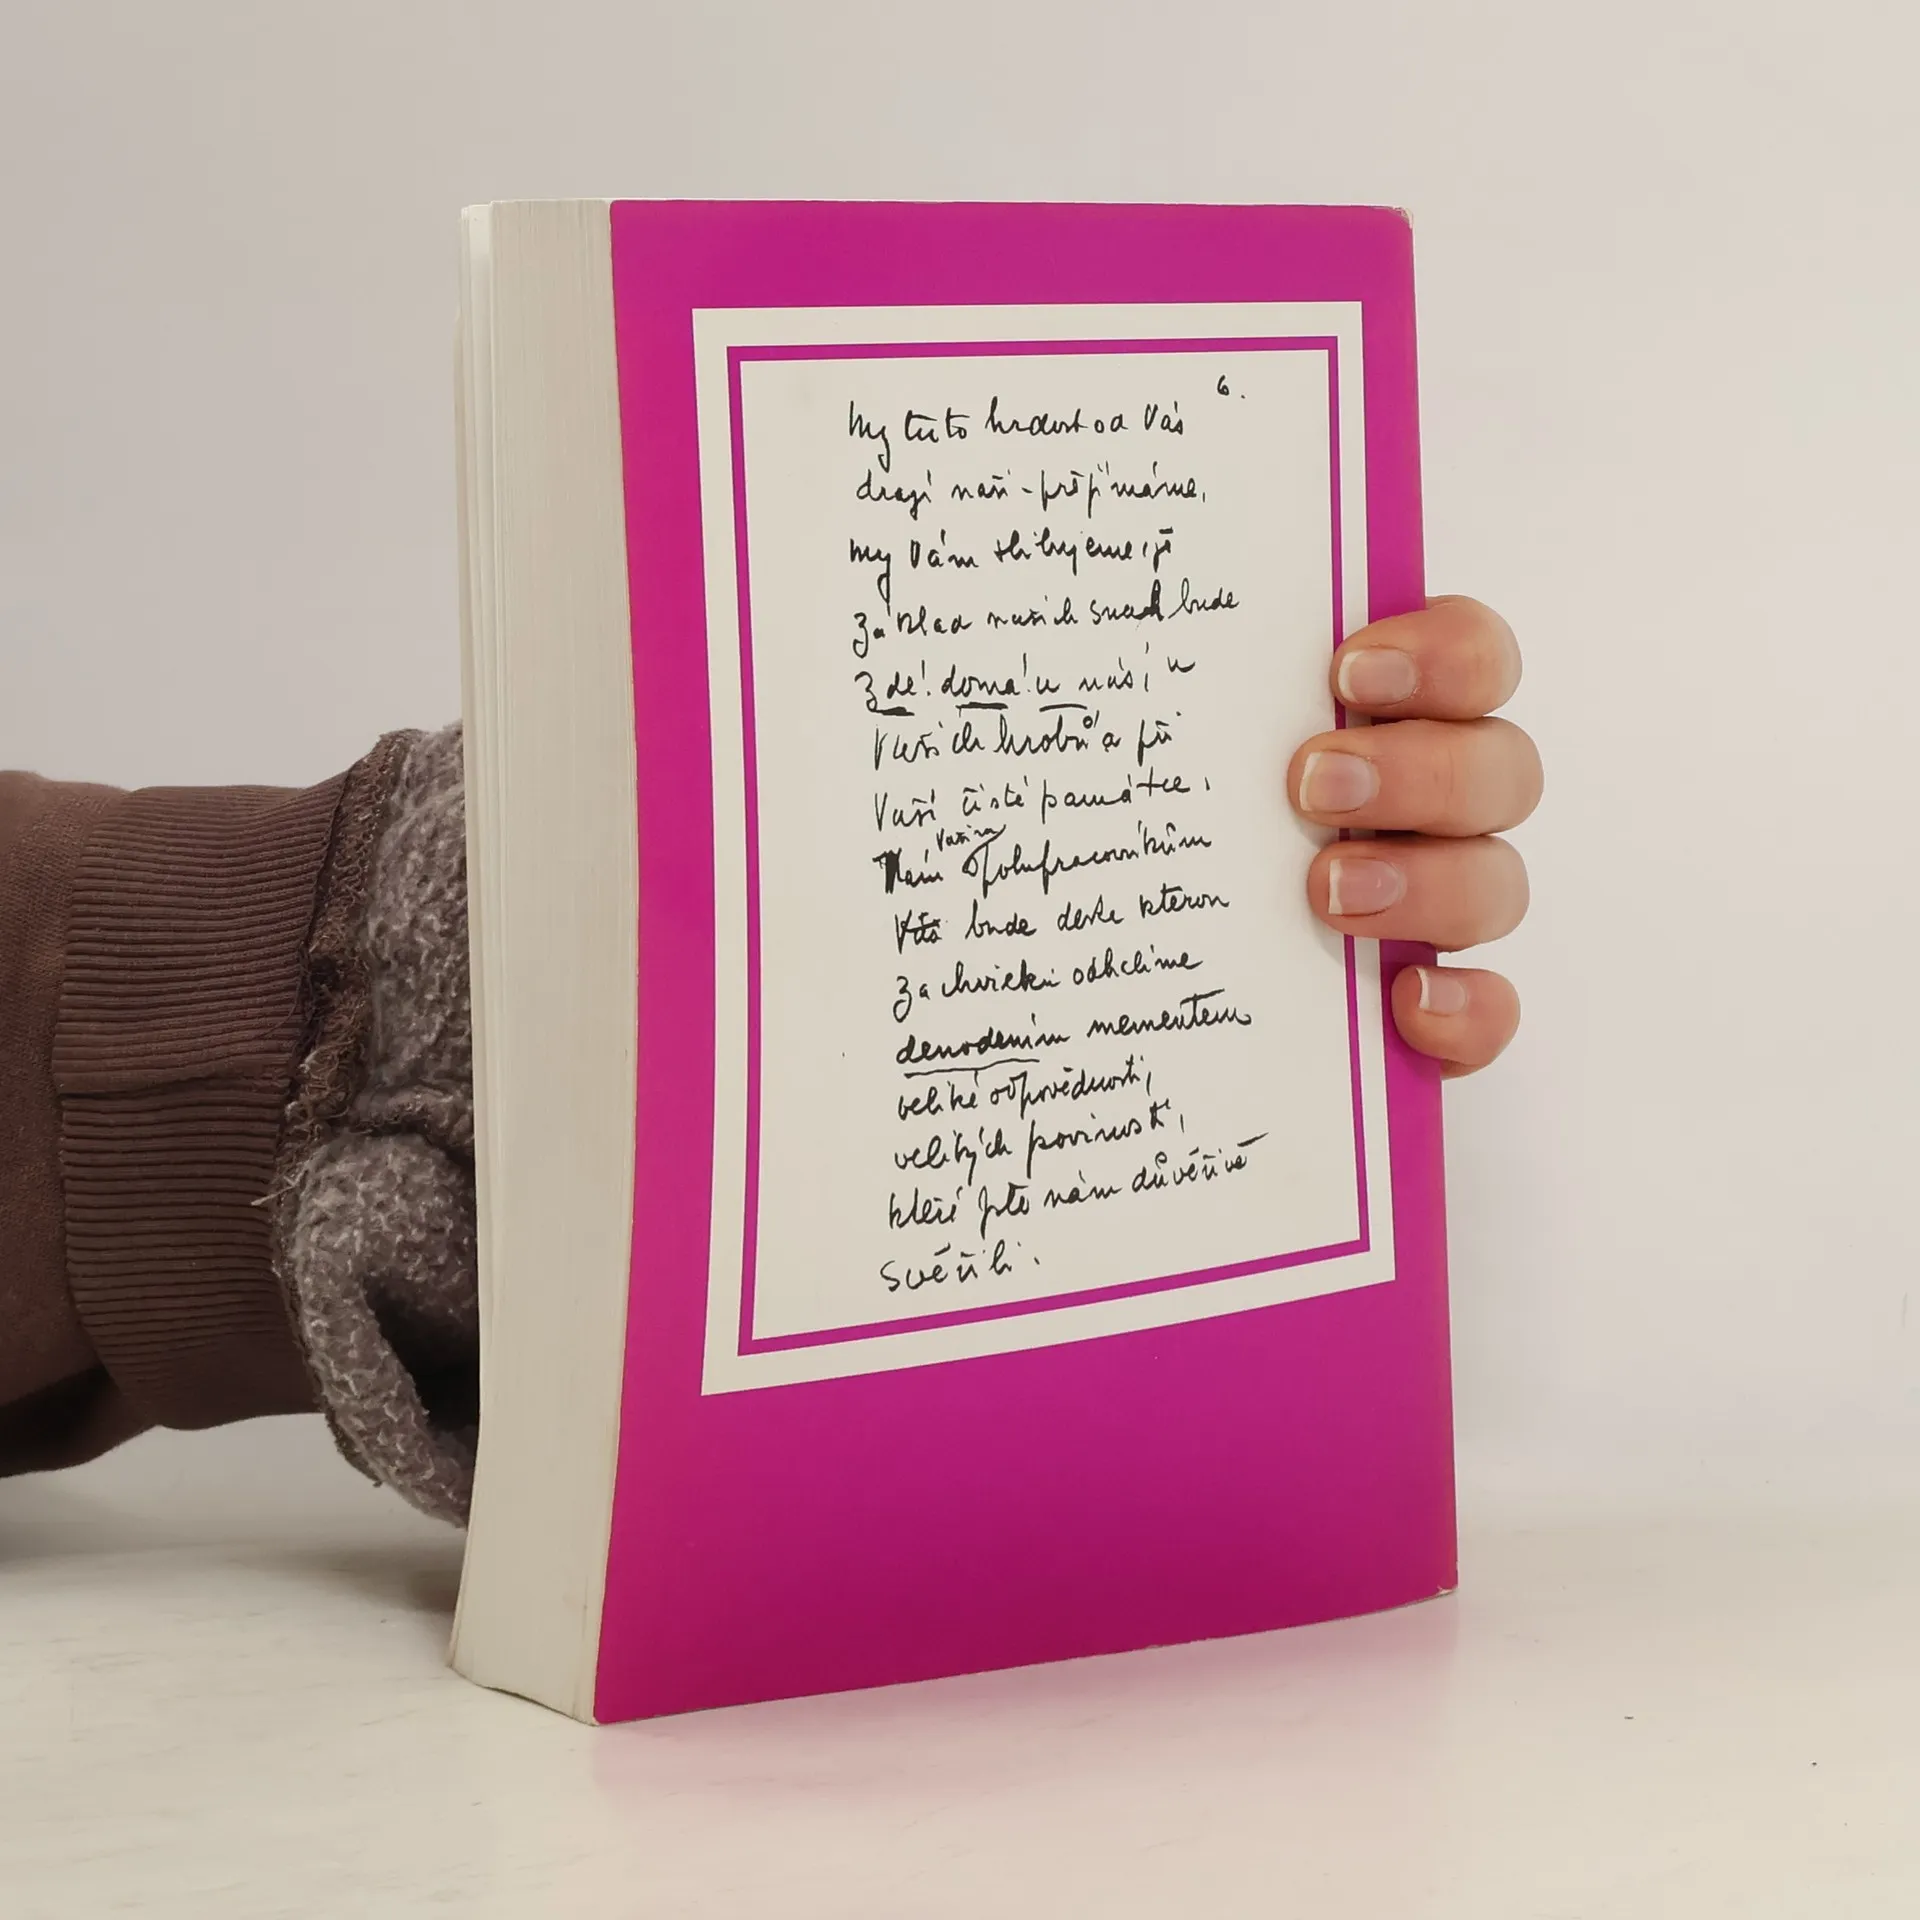 6.
My tuto hrdost od Vás
drazí naši - přijímáme,
my Vám slibujeme, že
základ našich snah bude
zde! doma! u nás, u
Vašich hrobů a při
Vaší čisté památce,
Vašim
Nám spolupracovníkům
bude deska kterou
za chvilku odhalíme
denodením mementem
veliké odpovědnosti,
velikých povinností,
které jste nám důvěřivě
svěřili.